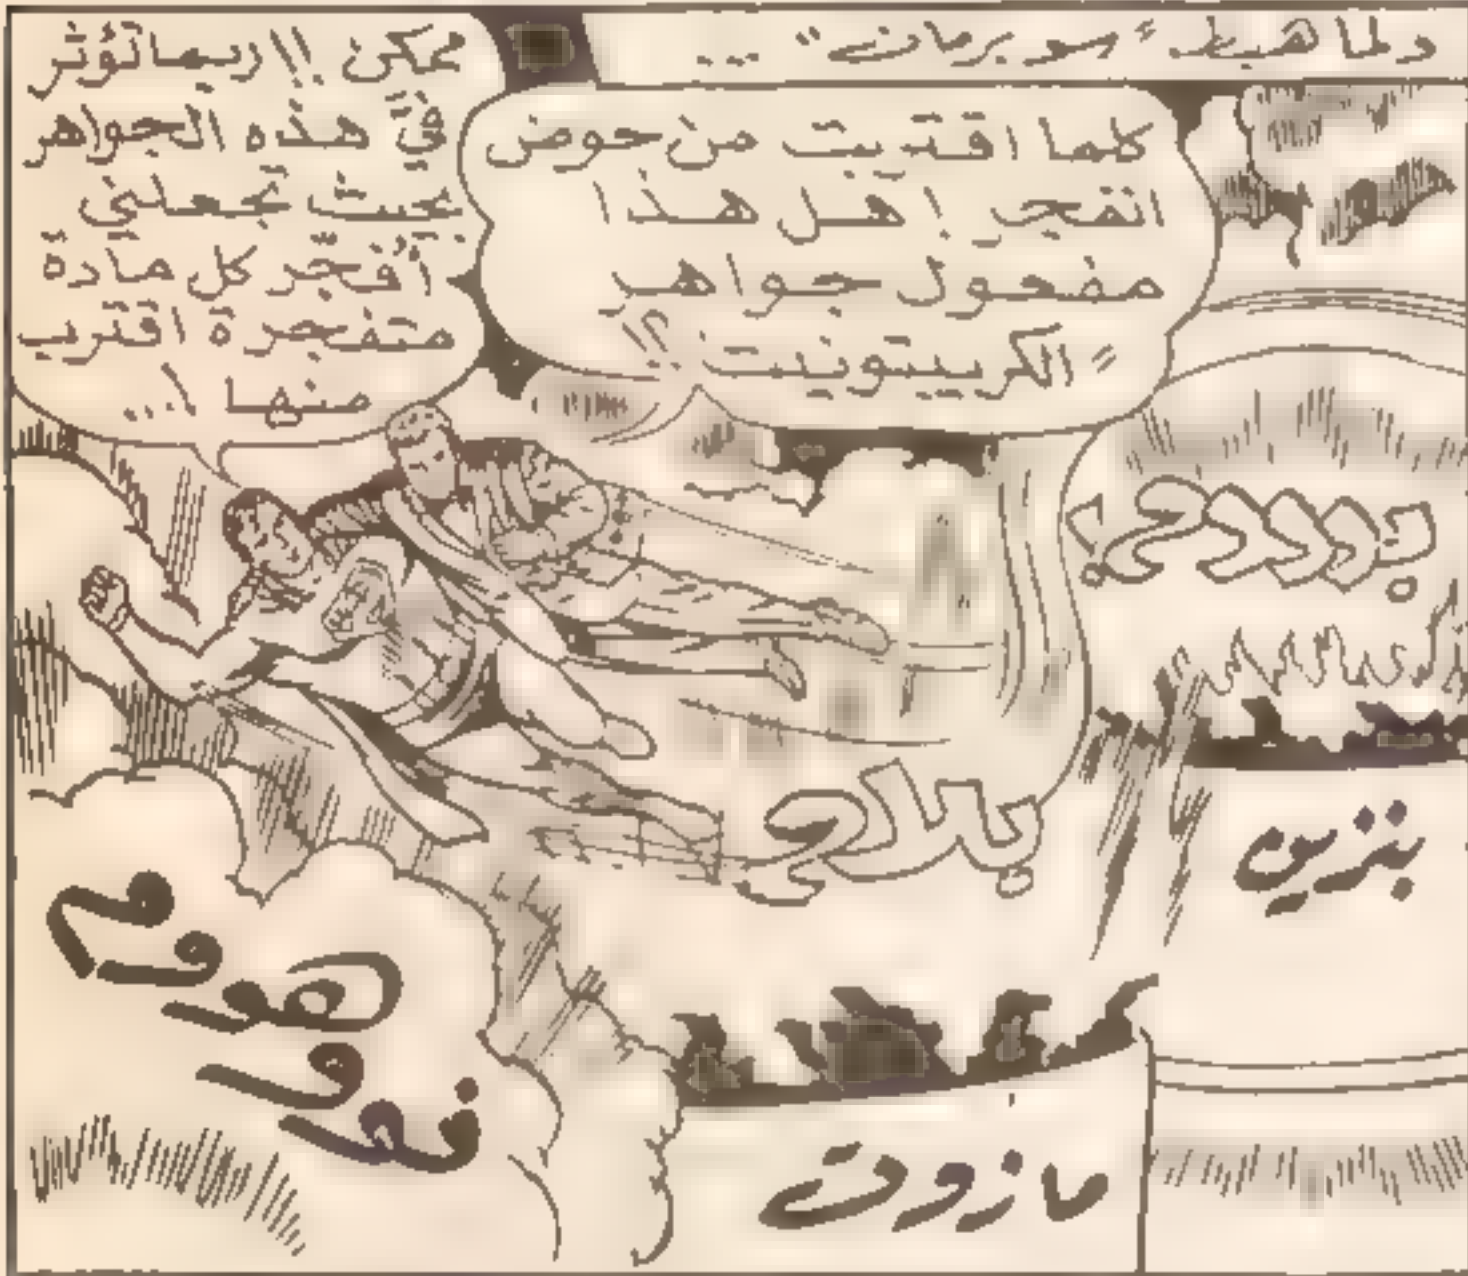 ولما هبط "سوبرمان" ...
كلما اقتربت من حوض
انفجر ! هل هذا
مفعول جواهر
"الكريبتونيت ؟!
ممكن !! ربما تؤثر
فيّ هذه الجواهر
بحيث تجعلني
أفجّر كل مادة
متفجرة اقترب
منها !...
بووووم!
بلاو
بنزين
هووم
فهوو
مازوت